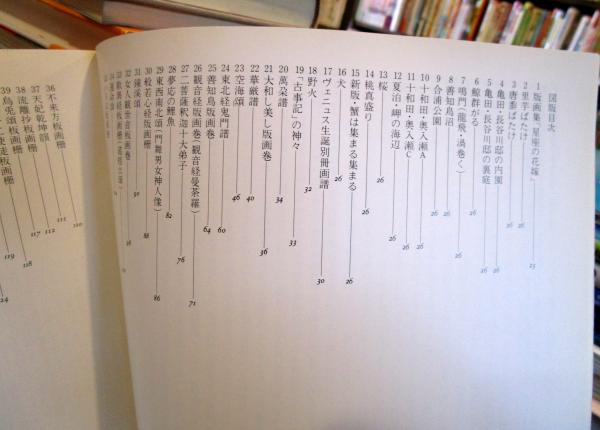 図版目次
1 版画集「星座の花嫁」 25
2 里芋ばたけ 26
3 唐黍ばたけ 26
4 亀田・長谷川邸の内園 26
5 亀田・長谷川邸の裏庭 26
6 鯨群がる 26
7 鳴門(龍飛・渦巻く) 26
8 善知鳥沼 26
9 合浦公園 26
10 十和田・奥入瀬A 26
11 十和田・奥入瀬C 26
12 夏泊・岬の海辺 26
13 桜 26
14 桃真盛り 26
15 新版・蟹は集まる集まる 26
16 犬 26
17 ヴェニュス生誕別冊画譜 30
18 野火 32
19 「古事記」の神々 33
20 萬朶譜 34
21 大和し美し版画巻 36
22 華厳譜 40
23 空海頌 46
24 東北経鬼門譜 60
25 善知鳥版画巻 64
26 観音経版画巻(観音経曼荼羅) 71
27 二菩薩釈迦十大弟子 76
28 夢応の鯉魚 82
29 東西南北頌(門舞男女神人像) 86
30 般若心経版画柵 88
31 鐘溪頌 90
32 女人観世音板画巻 98
36 不来方板画柵 110
37 天妃乾坤韻 111
38 流離抄板画柵 112